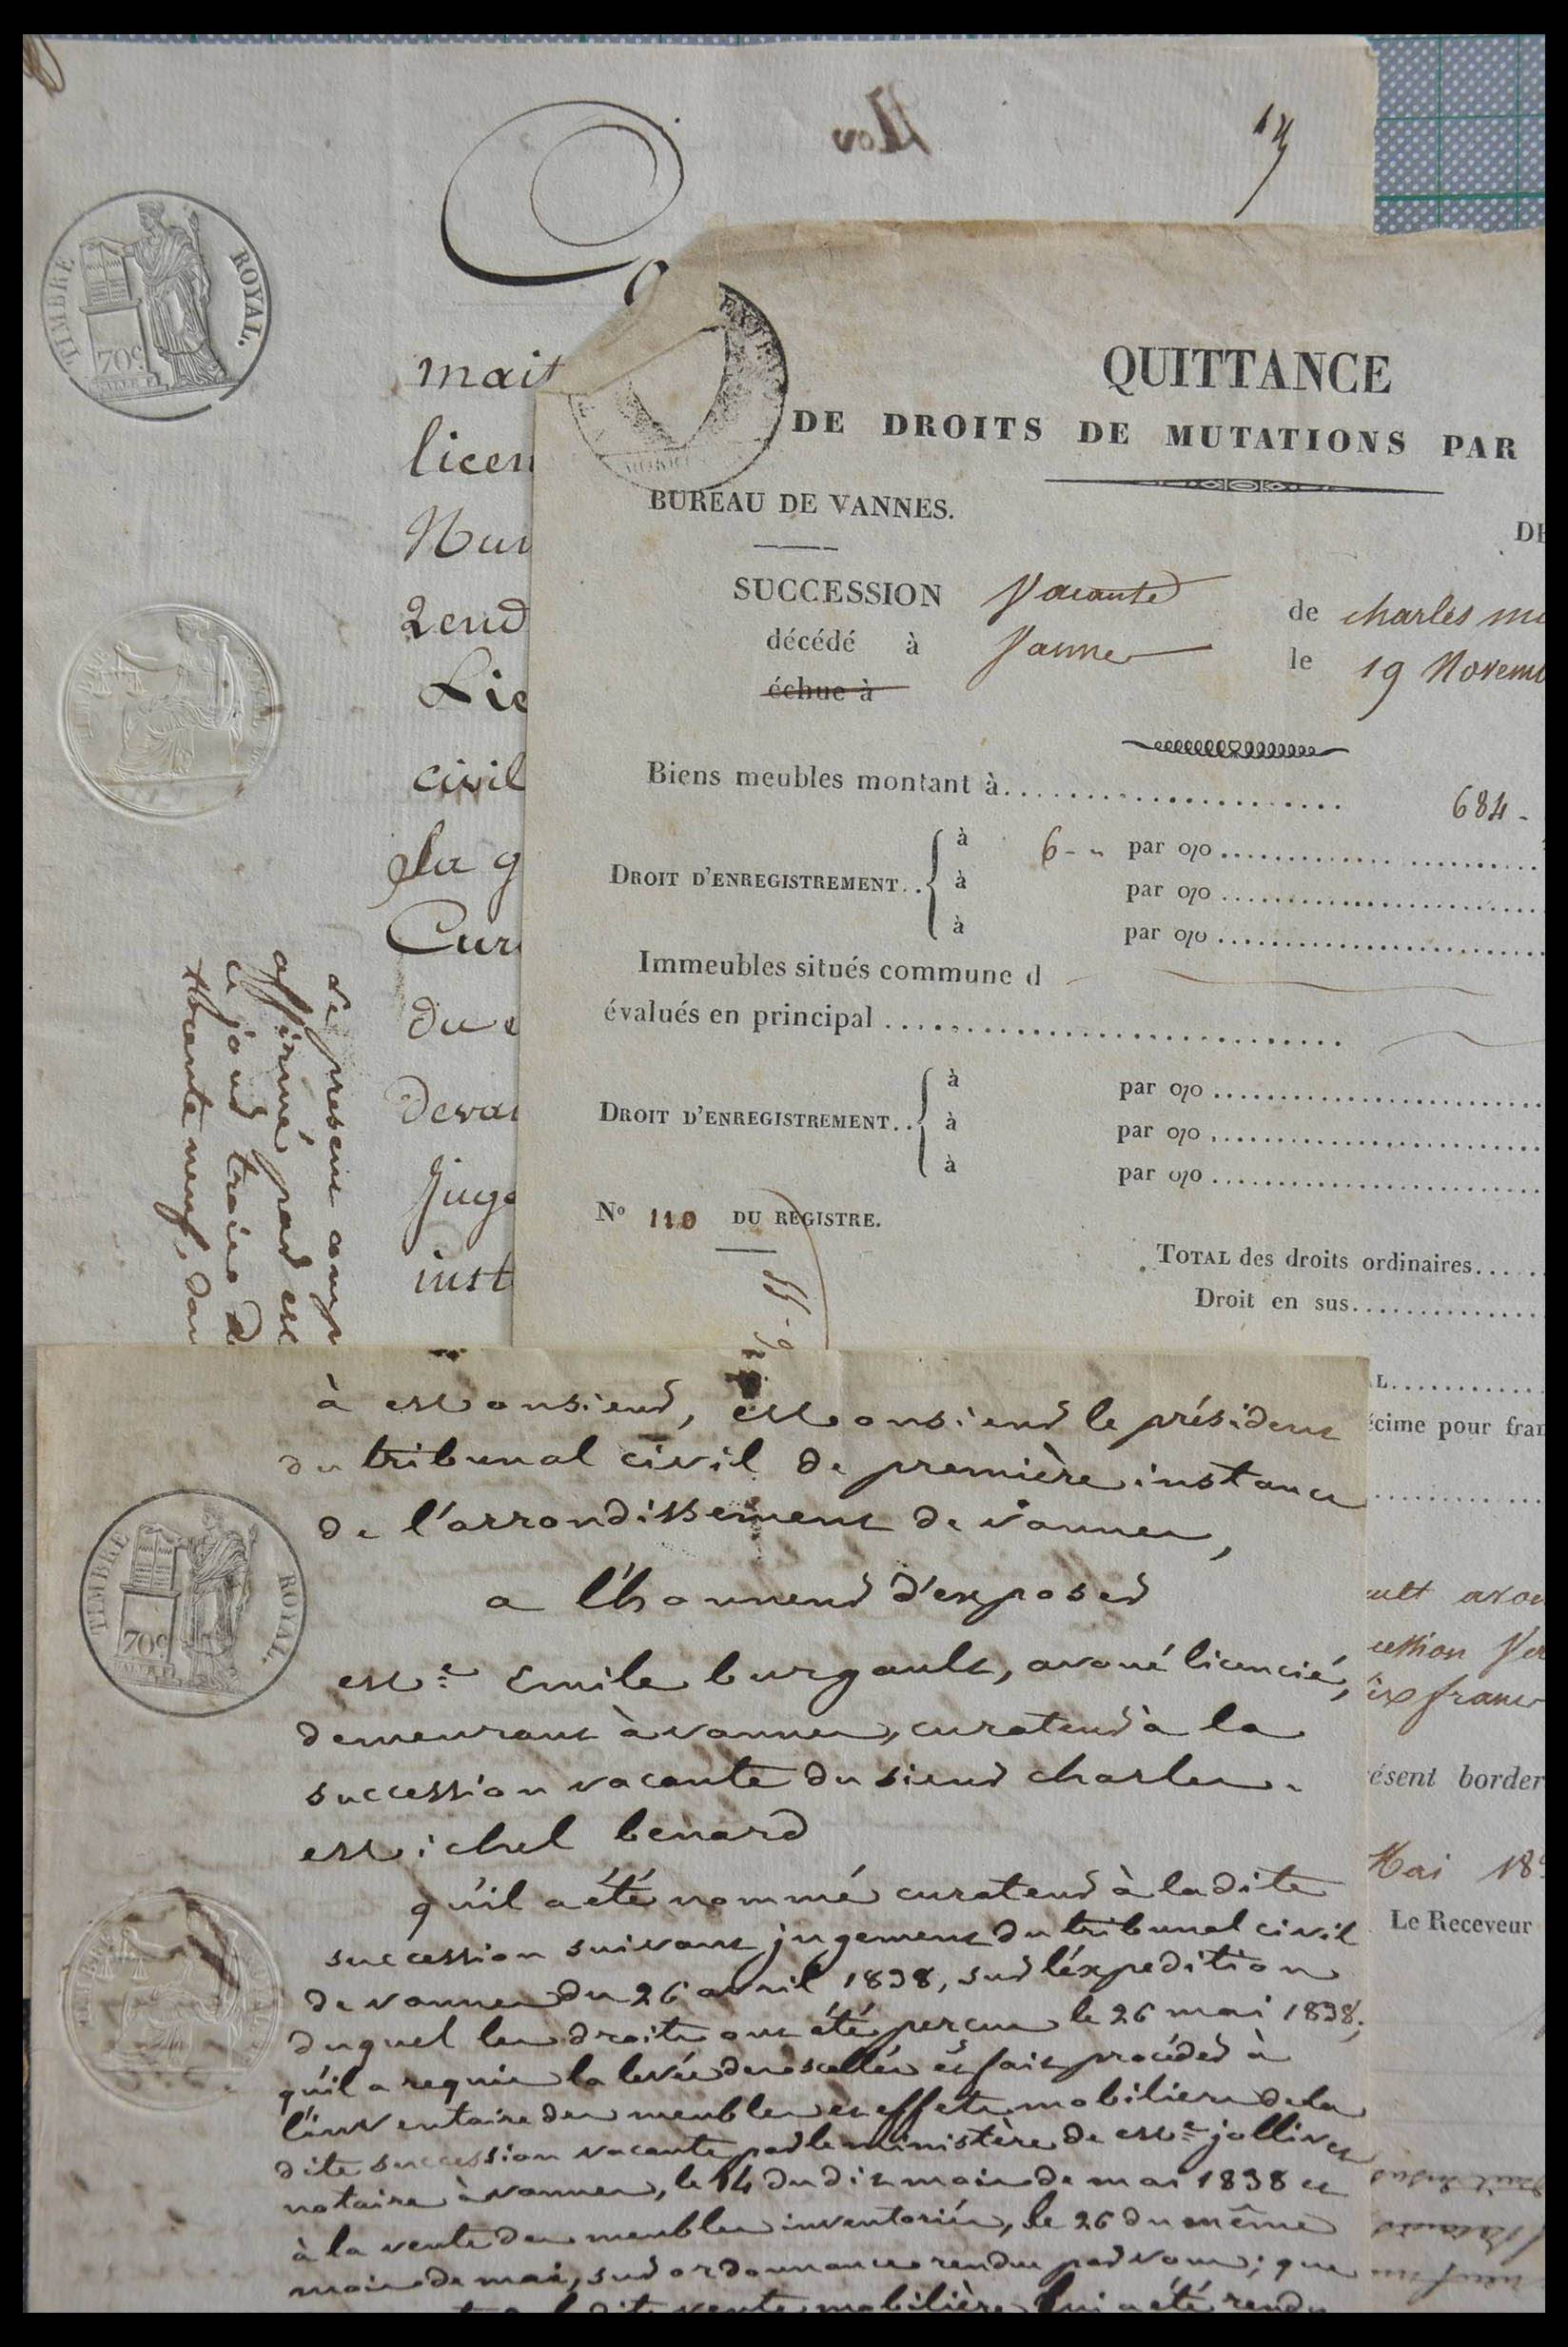 TIMBRE ROYAL.
70c
mait
licen
civil
la g
Cur
du
deva
Juge
inst
le présent
affirmé par
ce jour trois
trente neuf,
QUITTANCE
DE DROITS DE MUTATIONS PAR
BUREAU DE VANNES.
DE
SUCCESSION Vacante de charles mi
décédé à Vannes le 19 Novem
échue à
Biens meubles montant à 684 -
DROIT D'ENREGISTREMENT..
à 6 - " par 0/0
à par 0/0
à par 0/0
Immeubles situés commune d
évalués en principal
DROIT D'ENREGISTREMENT..
à par 0/0
à par 0/0
à par 0/0
N° 110 DU REGISTRE.
TOTAL des droits ordinaires
Droit en sus
L
écime pour fran
ault avou
cession
ix francs
ésent border
Mai 18
Le Receveur
TIMBRE ROYAL.
70c
à Monsieur, Monsieur le président
du tribunal civil de première instance
de l'arrondissement de vannes,
a l'honneur d'exposer
Me Emile burgault, avoué licencié,
demeurant à vannes, curateur à la
succession vacante du sieur charles
Michel benard
qu'il a été nommé curateur à ladite
succession suivant jugement du tribunal civil
de vannes du 26 avril 1838, sur l'expedition
duquel les droits ont été perçus le 26 mai 1838;
qu'il a requis la levée des scellés et fait procéder à
l'inventaire des meubles et effets mobiliers de la
dite succession vacante par le ministère de Me jollivet
notaire à vannes, le 14 du dit mois de mai 1838 et
à la vente des meubles inventoriés, le 26 du même
mois de mai, sur ordonnance rendue par vous; que
dite vente mobilière lui a été rendu